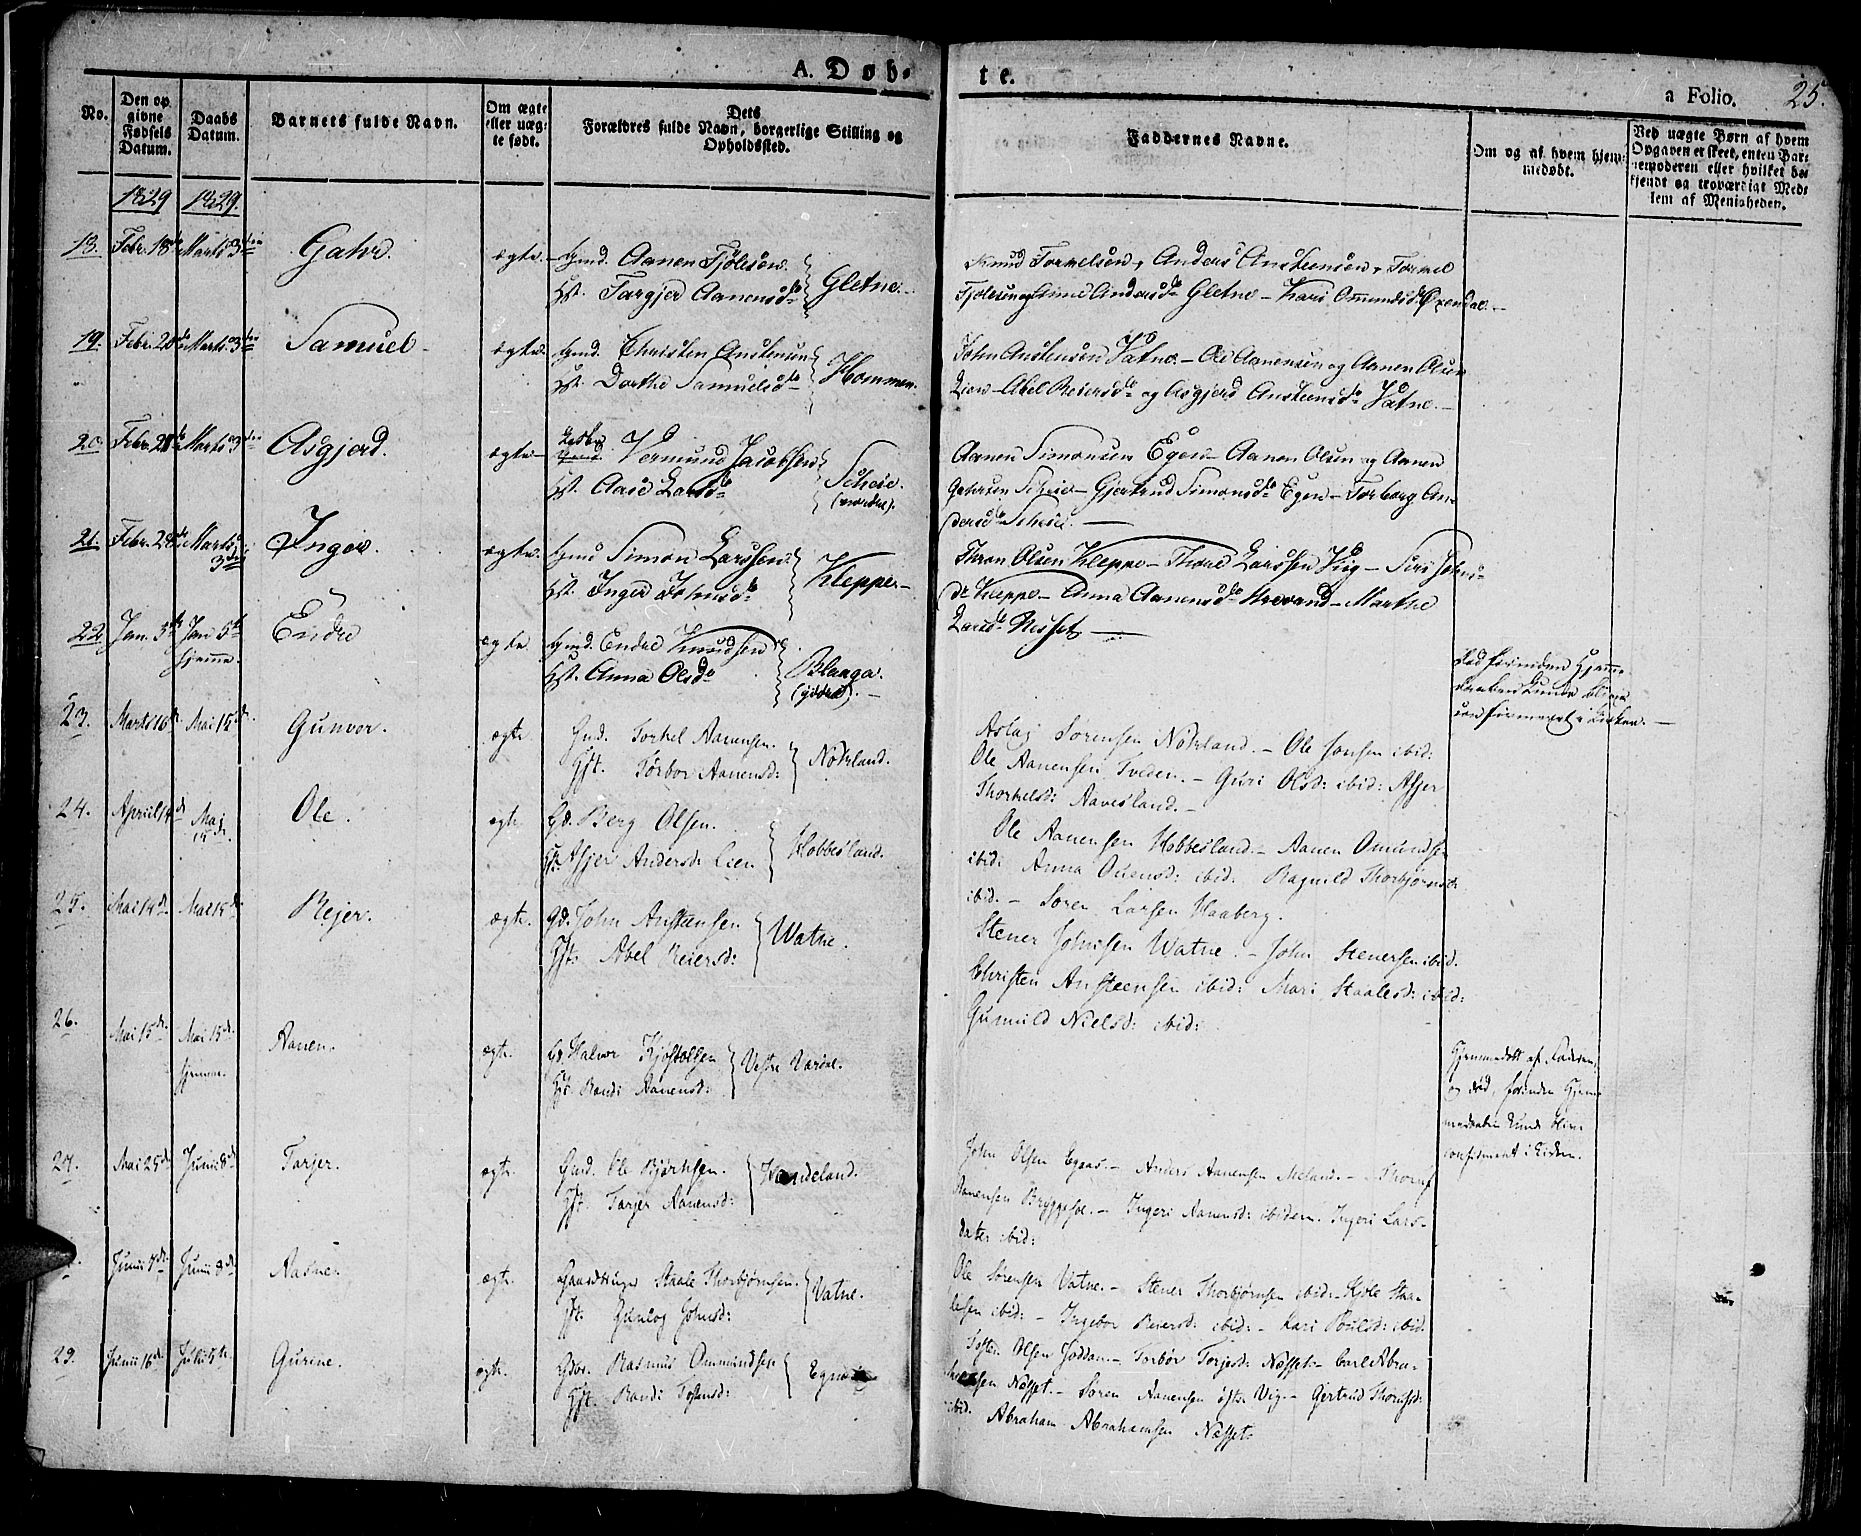 A. Døb-
te.
a Folio. 25.
No.
Den op
givne
Fødsels
Datum.
Daabs
Datum.
Barnets fulde Navn.
Om ægte
eller uæg-
te født.
Dets
Forældres fulde Navn, borgerlige Stilling og
Opholdssted.
Faddernes Navne.
Om og af hvem hjem-
medøbt.
Ved uægte Børn af hvem
Opgaven er skeet, enten Bar-
nemoderen eller hvilket be
kjendt og troværdigt Med-
lem af Menigheden.
1829 1829.
18. Febr. 18de Marts 3die Gahr. ægte. Gmd. Aanen Tjølesøn.
Hst. Targjer Aanensd. Gletne.
Knud Tormelsen, Anders Austensen, Tormel
Tjølesen og Anne Andersd. Gletne – Kari Ommundsd. Øxendal.
19. Febr. 20de Marts 3die Samuel. ægte. Gmd. Christen Austensen
Hst. Dorthe Samuelsd. Hommen.
John Austensen Vatne – Ole Aanensen og Aanen Olsen
Lien – Abel Reiersd. og Asgjerd Austensd. Vatne.
20. Febr. 21de Marts 3die Asgjerd. ægte – Vermund Jacobsen
Hst. Aase Larsd. Scheie.
(nordre).
Aanen Simonsen Egen – Aanen Olsen og Aanen
Gahrsen Scheie – Gjertrud Simonsd. Egen – Torborg An-
dersd. Scheie.
21. Febr. 24de Marts
3die Inger. ægte. Gmd Simon Larssen
Hst. Inger Johnsd. Kleppe –
Thron Olsen Kleppe – Thore Larssen Vig – Siri Johns-
d. Kleppe – Anna Aanensd. Krevand – Marthe
Larsd. Nesset
22 Jan. 5te Jan 5te
hjemme. Endre ægte Gmd. Endre Knudsen
Hst. Anna Olsd. Blanga.
død forinden Hjemme-
daaben kunde blive
confirmeret i Kirken. –
23. Marts 16de Mai 15de Gunvor. ægte Gmd. Torkel Aanensen.
Gst. Tørbor Aanensd: Nøkland.
Aslag Sørensen Nøkland. – Ole Jansen ibid:
Ole Aanensen Tveden. – Guri Olsd: ibid: Asjer
Thorkelsd: Aavesland. –
24. April 14de Maj
15de Ole. ægte Gd. Berg Olsen.
Gst. Asjer Andersd: Lien Hobbesland.
Ole Aanensen Hobbesland. – Aanen Omundsen
ibid: Anna Ouensd: ibid. Ragnild Thorbjørnsd:
ibid. – Søren Larsen Haaberg.
25. Mai 14de Mai 15de Rejer. ægte. Gd. John Anstensen
Gst. Abel Reiersd: Watne.
Stener Johnsen Watne. – John Stenersen ibid.
Christen Ansteensen ibid: Mari Staalesd: ibid:
Gunuld Nielsd: ibid:
26. Mai 15de Mai 15de
hjemme. Aanen. ægte. Gd Halvor Kjøstolsen
Gst. Randi Aanensd: Vestre Værdal.
Hjemmedøbt af Faderen,
og død, forinden Hjem-
medaaben kunde blive
confirmeret i Kirken.
27. Mai 25de Junii 8de Tarjer. ægte. Gmd. Ole Bjørnsen.
Gst. Tarjer Aanensd: Handeland.
John Olsen Egaas. – Anders Aanensen Meland. – Thorus
Aanensen Bryggesa. – Ingeri Aanensd: ibidem. Ingeri Lars-
dater ibid:
Junii 7de Junii 8de Aasne. ægte. Gaardbruger Staale Thorbjørnsen.
Gst. Gunlog Johnsd: Vatne.
Ole Sørensen Vatne. – Stener Thorbjørnsen ibid: – Kjøle Staa-
lesen ibid: – Ingebor Reiersd: ibid: – Kari Poulsd: ibid.
29. Junii 16de Julii 5te Gurine. ægte. Gdbr. Rasmus Ommundsen
Gst. Randi Tosansd: Egna
Tosten Olsen Joddan. – Torbor Torjesd: Næsset. – Carl Abra-
hamsen Næsset. – Søren Aanensen østre Vig. – Gertrud Thorusd:
ibid. Abraham Abrahamsen Næsset.